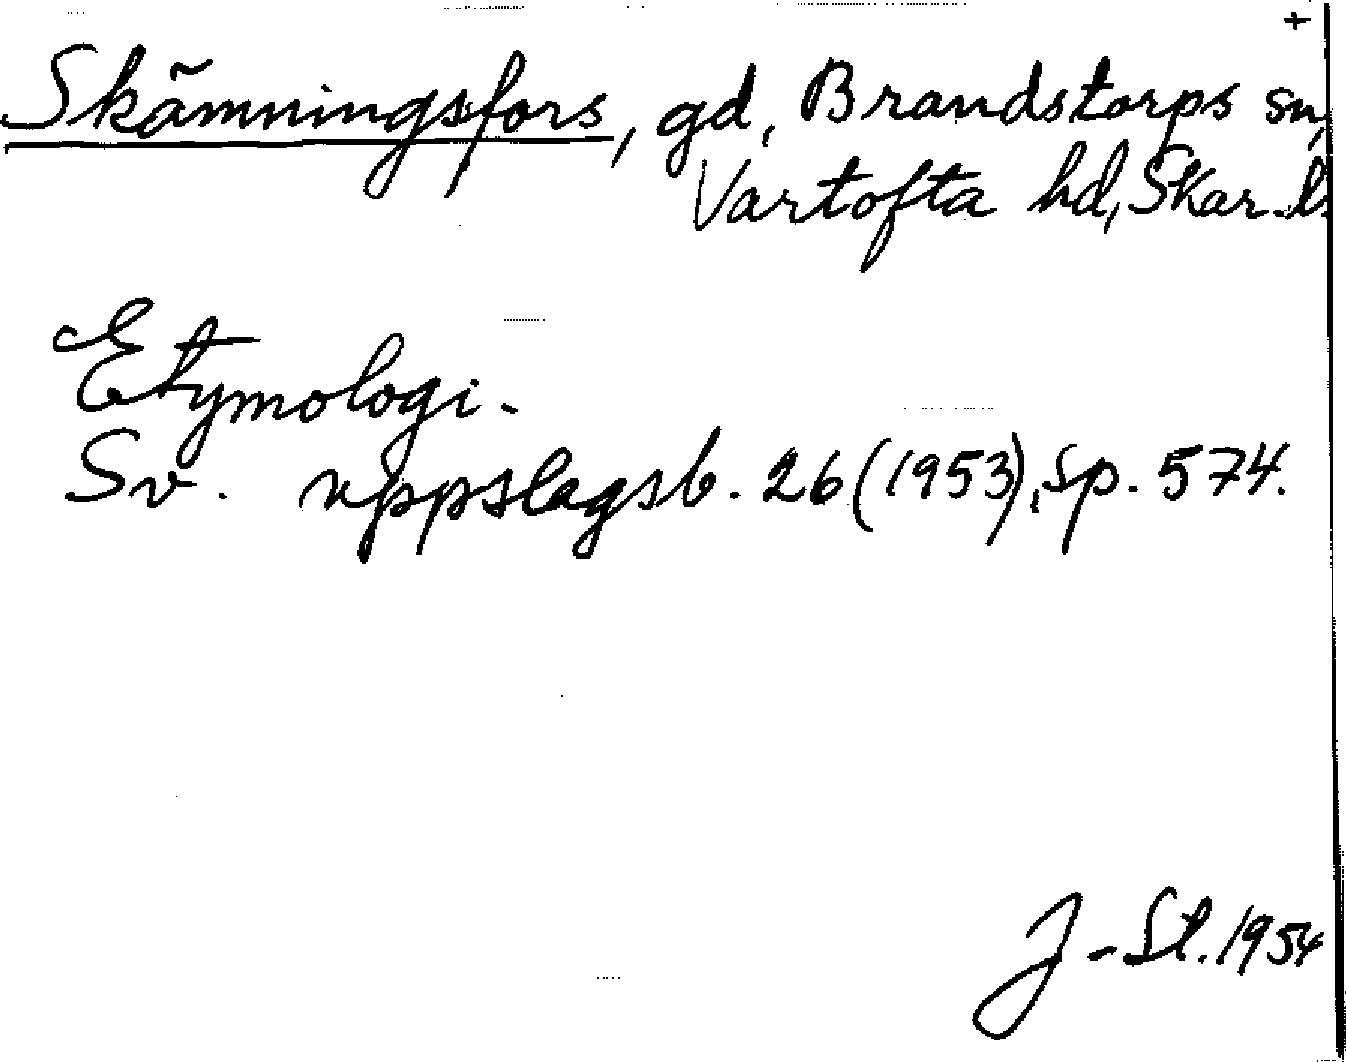 +
Skämningsfors, gd, Brandstorps sn,
Vartofta hd, Skar. l.
Etymologi.
Sv. uppslagsb. 26 (1953), sp. 574.
J-St. 1954